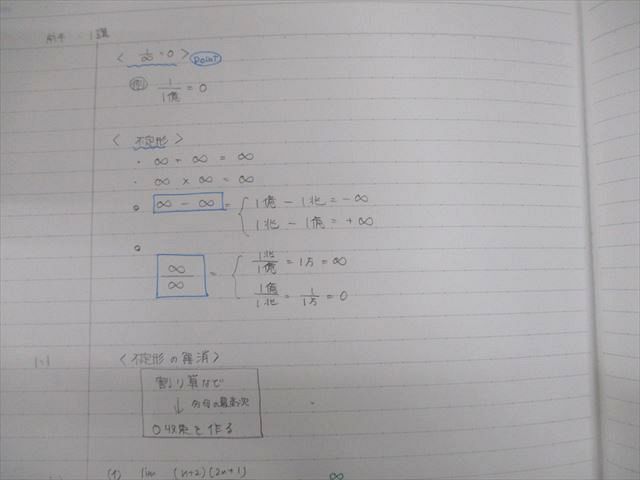 1講
< 1/∞ = 0 > point
例 1/1億 = 0
< 不定形 >
・ ∞ + ∞ = ∞
・ ∞ × ∞ = ∞
∞ - ∞ = { 1億 - 1兆 = -∞
1兆 - 1億 = +∞
∞/∞ = { 1兆/1億 = 1万 = ∞
1億/1兆 = 1/1万 = 0
1-1
< 不定形の解消 >
割り算などで
↓ 分母の最高次
0収束を作る
(1) lim (n+2)(2n+1) ∞